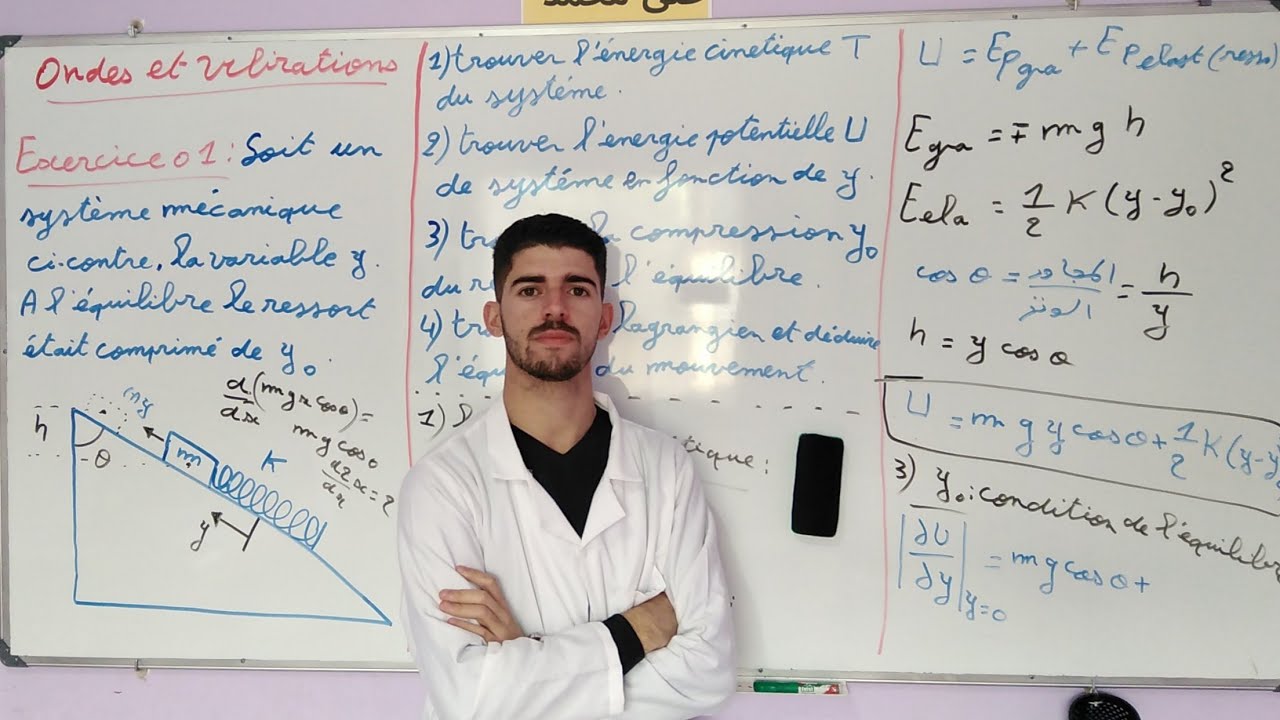 Ondes et Vibrations
Exercice 01: Soit un
système mécanique
ci-contre, la variable y.
A l'équilibre le ressort
était comprimé de y₀
d/dx (mgx cosθ) =
mg cosθ
d2x/dx = 2
h
θ
m
K
y
1) trouver l'énergie cinetique T
du systéme.
2) trouver l'énergie potentielle U
de systéme en fonction de y.
3) la compression y₀
du l'équilibre.
4) lagrangien et déduire
du mouvement.
1)
tique:
U = Epgra + Epelast (resso)
Egra = ∓ m g h
Eela = 1/2 K (y-y₀)²
cos θ = المجاور/الوتر = h/y
h = y cos θ
U = m g y cos θ + 1/2 K (y-y
3) y₀: condition de l'équilibre
|∂U/∂y|y=0 = mg cos θ +